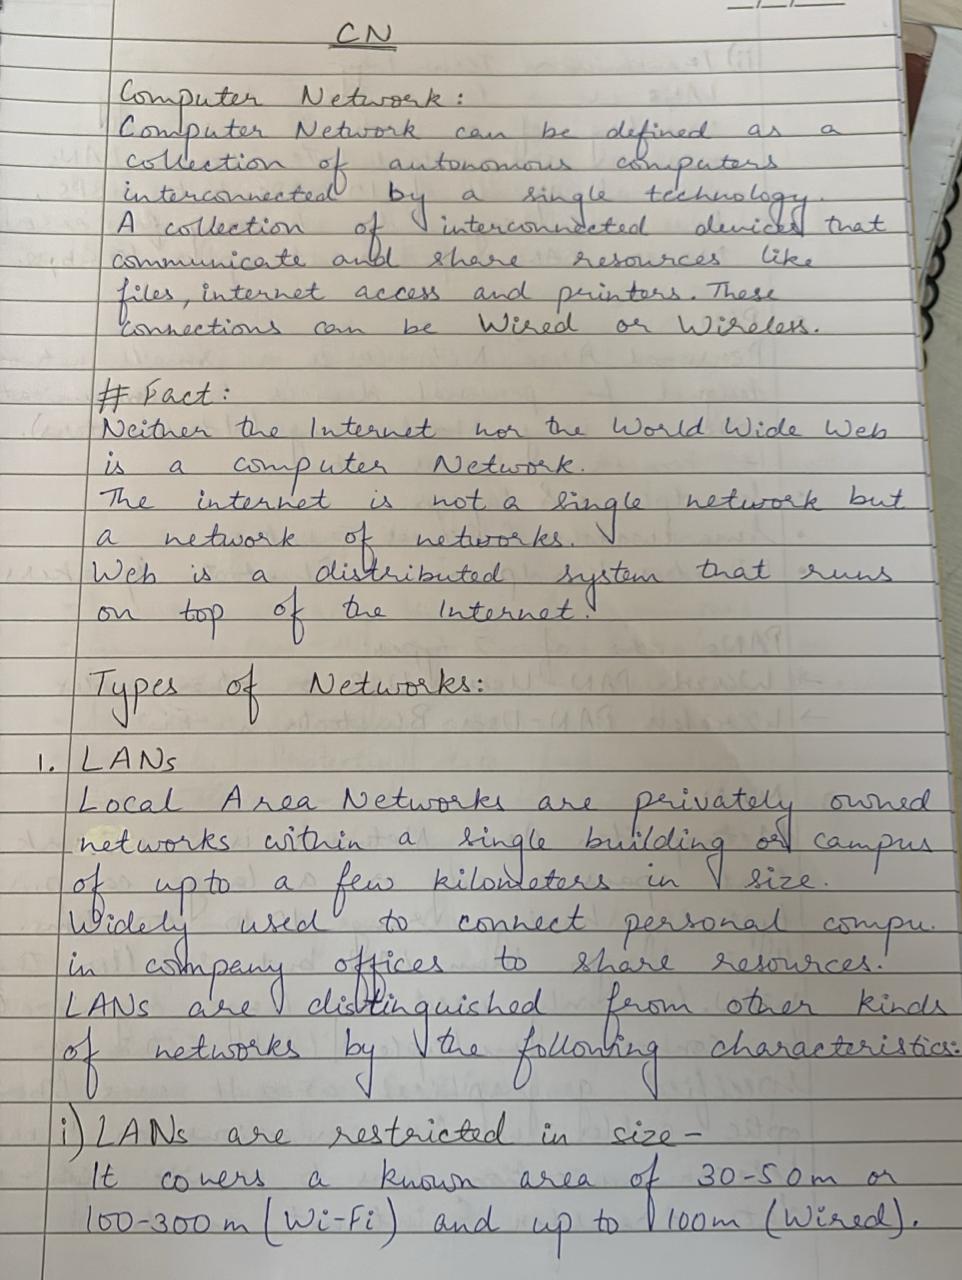 CN
Computer Network:
Computer Network can be defined as a
collection of autonomous computers
interconnected by a single technology.
A collection of interconnected devices that
communicate and share resources like
files, internet access and printers. These
connections can be Wired or Wireless.
# Fact:
Neither the Internet nor the World Wide Web
is a computer Network.
The internet is not a single network but
a network of networks.
Web is a distributed system that runs
on top of the Internet.
Types of Networks:
1. LANs
Local Area Networks are privately owned
networks within a single building or campus
of upto a few kilometers in size.
Widely used to connect personal compu.
in company offices to share resources.
LANs are distinguished from other kinds
of networks by the following characteristics:
i) LANs are restricted in size -
It covers a known area of 30-50m or
100-300m (Wi-Fi) and up to 100m (Wired).